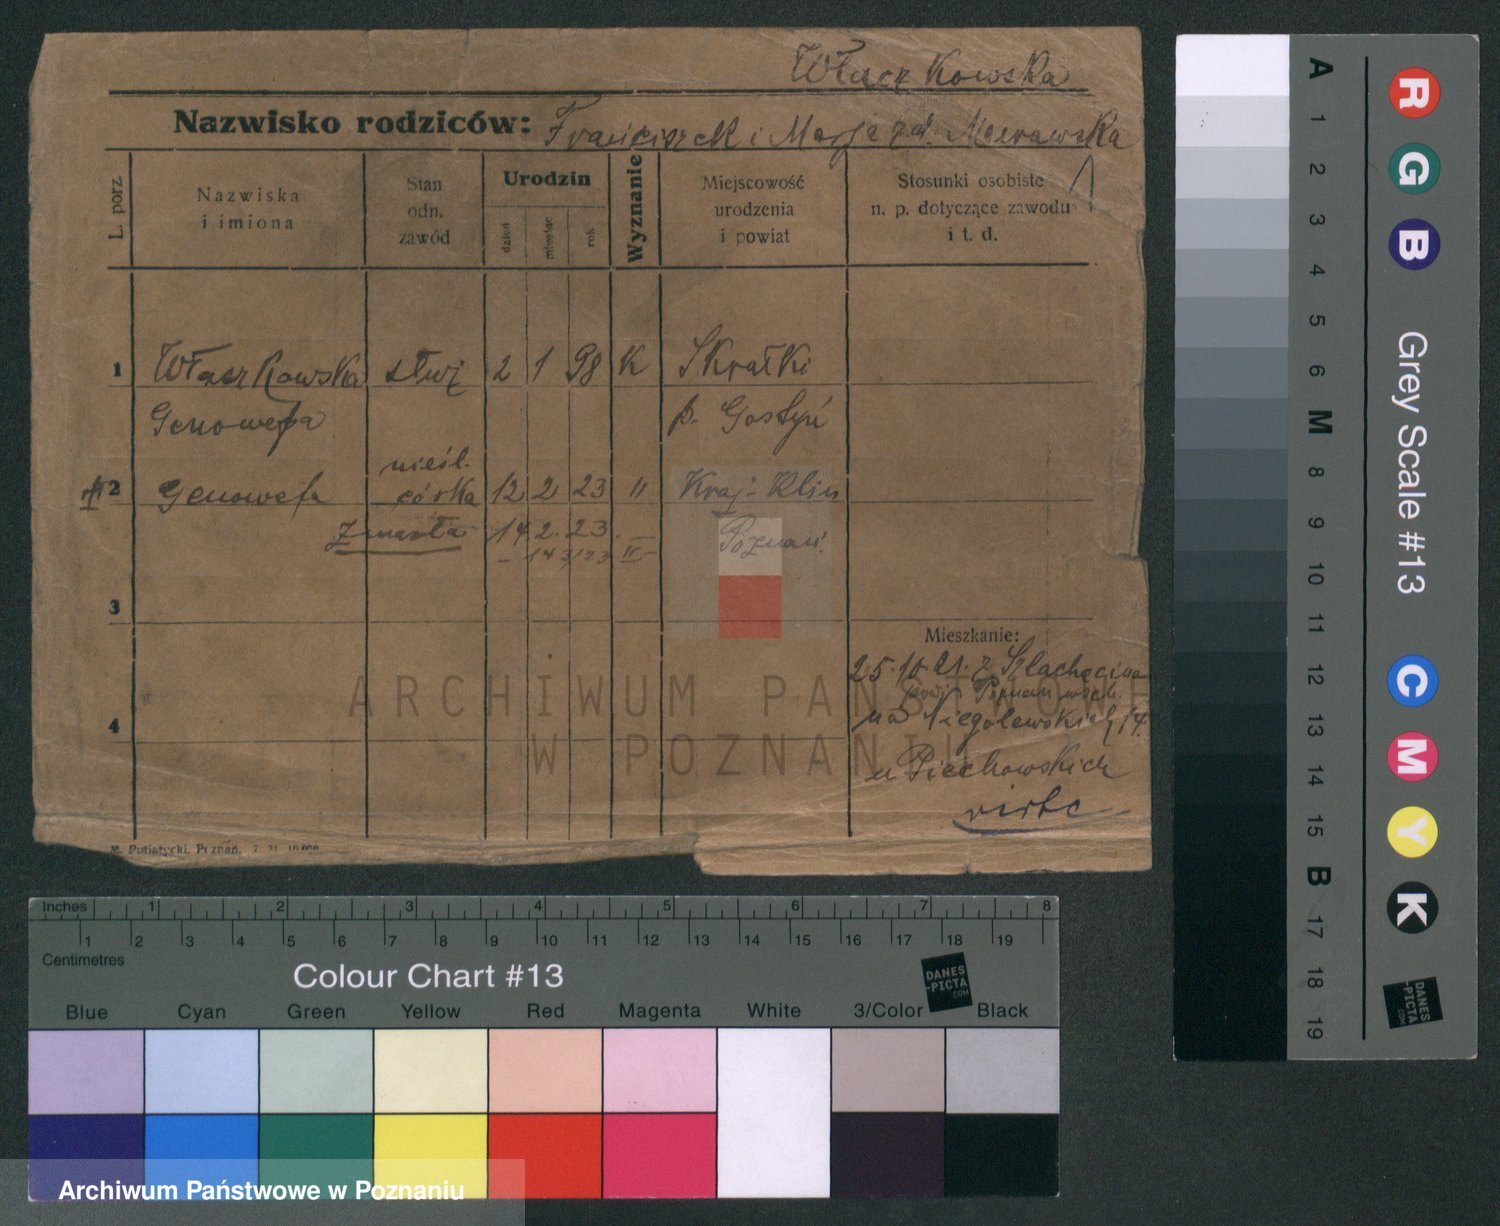 Właczkowska
Nazwisko rodziców: Franciszek i Marja zd. Murawska
L. porz.
Nazwiska
i imiona
Stan
odn.
zawód
Urodzin
dzień
miesiąc
rok
Wyznanie
Miejscowość
urodzenia
i powiat
Stosunki osobiste
n. p. dotyczące zawodu
i t. d.
1 Właczkowska służ 2 1 98 K Skrałki
Genowefa p. Gostyń
nieśl.
2 Genowefa córka 12 2 23 " Kraj-Klin
Zmarła 14. 2. 23. Poznań.
3
4
Mieszkanie:
25.10.21. z Szlachęcina
pow. Poznań wsch.
na Niegolewskich 14.
u Piechowskich
M. Putiatycki, Poznań, 7. 21. 10.000
ARCHIWUM PAŃSTWOWE
W POZNANIU
Inches 1 2 3 4 5 6 7 8
1 2 3 4 5 6 7 8 9 10 11 12 13 14 15 16 17 18 19
Centimetres
Colour Chart #13
DANES
-PICTA
.COM
Blue Cyan Green Yellow Red Magenta White 3/Color Black
Archiwum Państwowe w Poznaniu
A 1 2 3 4 5 6 M 8 9 10 11 12 13 14 15 B 17 18 19
R G B
Grey Scale #13
C M Y K
DANES
-PICTA
.COM